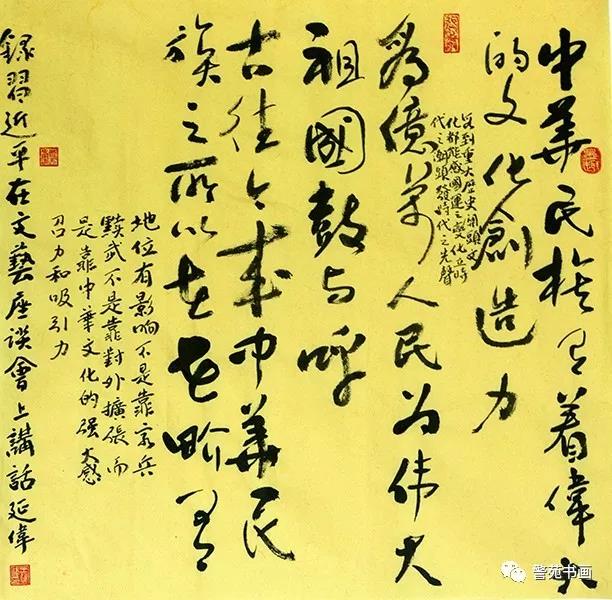 中華民族有着偉大
的文化創造力
每到重大歷史關頭文
化都能感國運之變化立時
代之潮頭發時代之先聲
為億萬人民为伟大
祖國鼓与呼
古往今来中華民
族之所以在世畍有
地位有影响不是靠穷兵
黩武不是靠對外擴張而
是靠中華文化的强大感
召力和吸引力
録習近平在文藝座談會上講話延偉
警苑书画